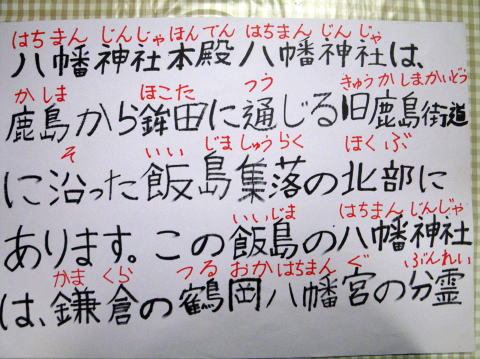 はちまん じんじゃ ほんでん はちまん じんじゃ
八幡神社本殿八幡神社は、
かしま ほこた つう きゅうかしまかいどう
鹿島から鉾田に通じる旧鹿島街道
そ いいじましゅうらく ほくぶ
に沿った飯島集落の北部に
いいじま はちまんじんじゃ
あります。この飯島の八幡神社
かまくら つるおかはちまんぐ ぶんれい
は、鎌倉の鶴岡八幡宮の分霊